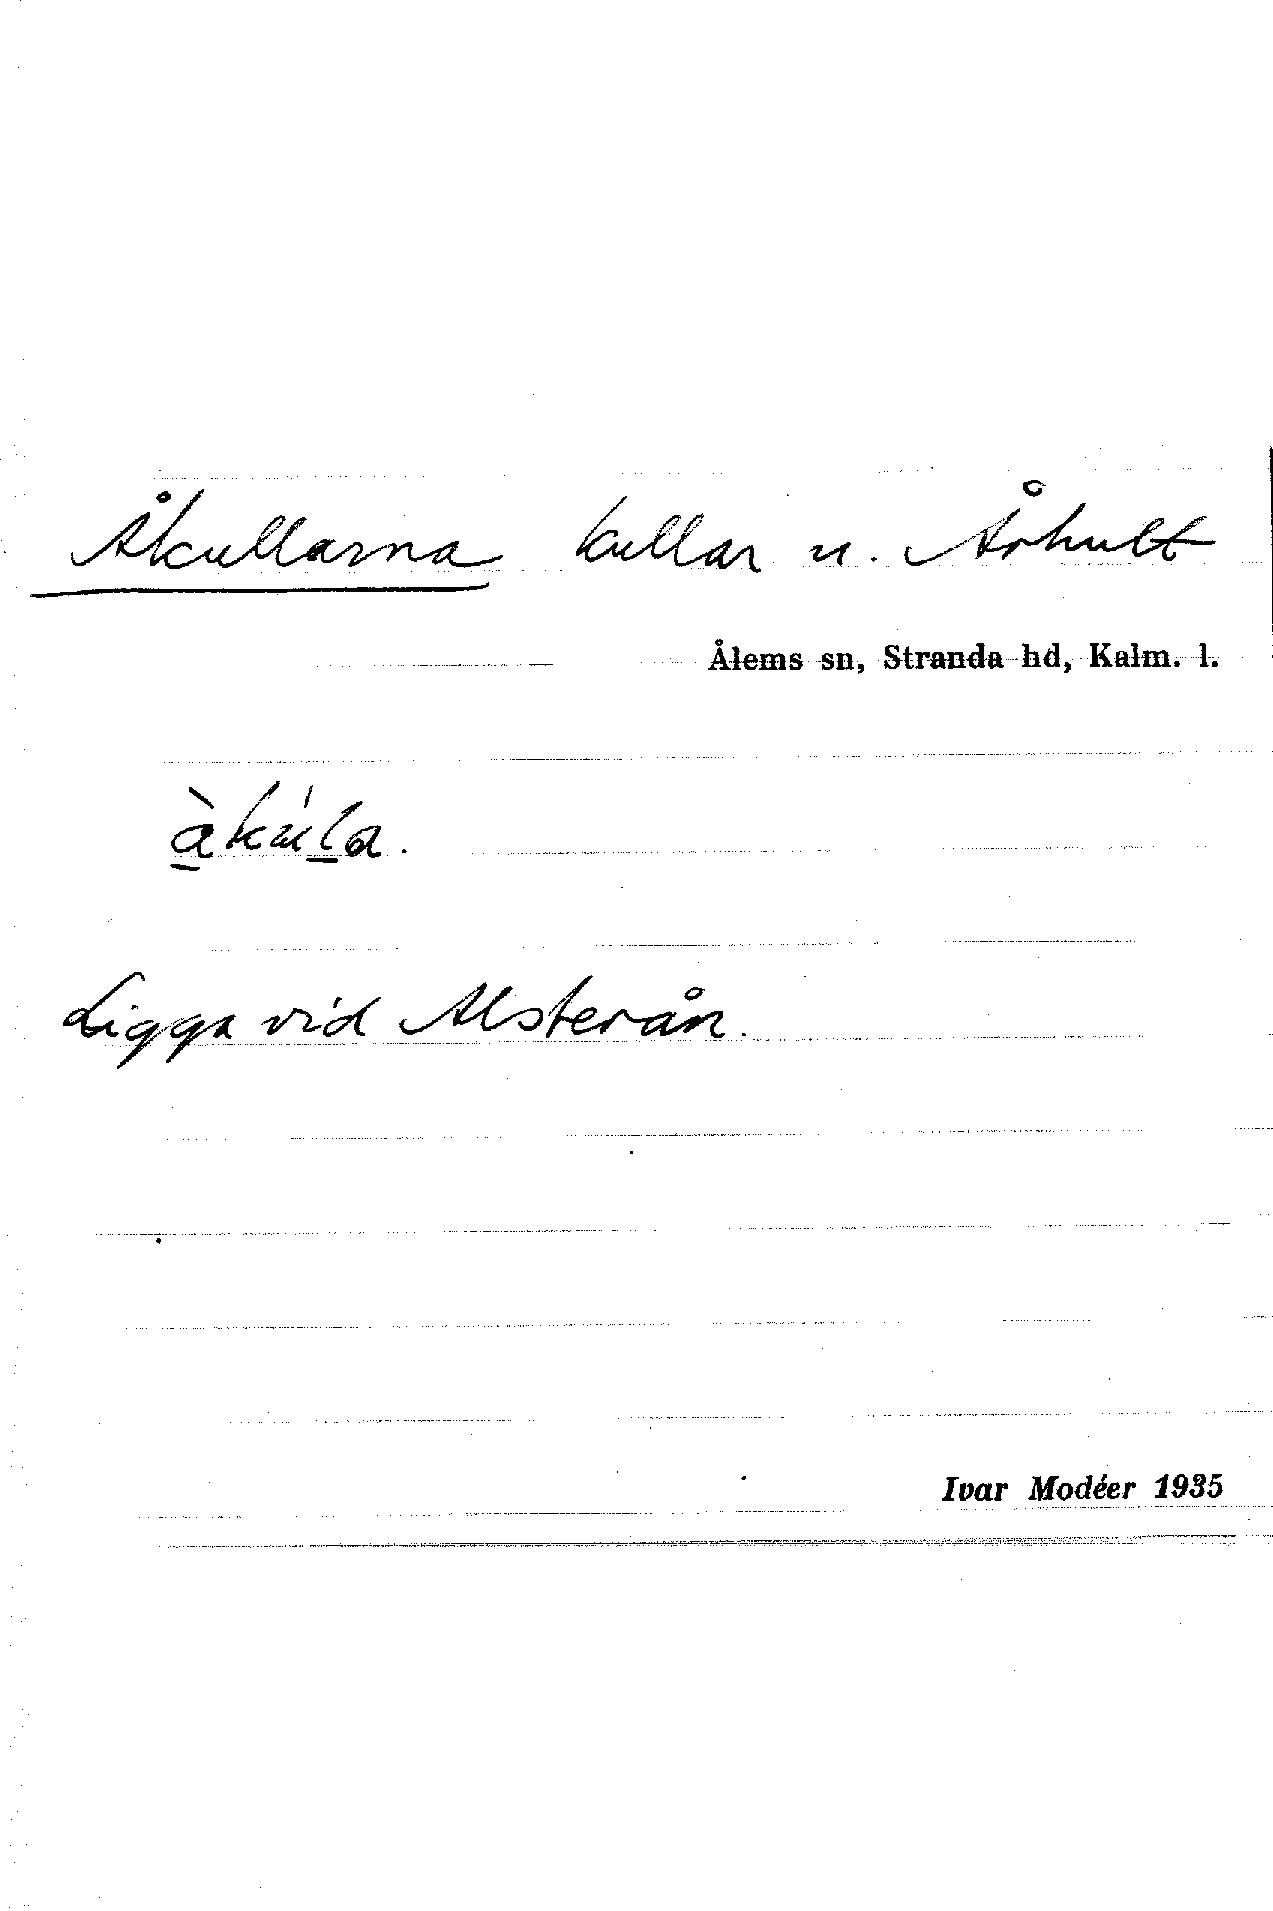 Åkullarna kullar u. Århult
Ålems sn, Stranda hd, Kalm. l.
Ligga vid Alsterån.
Ivar Modéer 1935